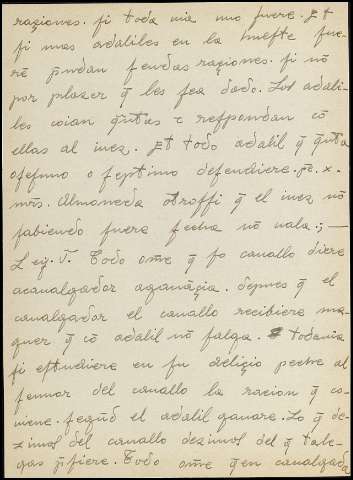 raçiones. si toda uia uno fuere. Et
si mas adaliles en la hueste fue-
rē prendan sendas raçiones. si nō
por plazer q̄ les sea dado. Los adali-
les coian q̄ntas e respondan cō
ellas al iuez. Et todo adalil q̄ q̄nta
ofesmo o septimo defendiere. pc̄. x.
mrs̄. Almoneda otrossi q̄ el iuez nō
sabiendo fuere fecha nō uala:; —
Ley. V. Todo om̄e q̄ so cauallo diere
acaualgador aganāçia. depues q̄ el
caualgador el cauallo recibiere ma-
guer q̄ cō adalil nō salga. todauia
si estudiere en su deliçio peche al
sennor del cauallo la racion q̄ co-
uiene. segūd el adalil ganare. Lo q̄ de-
zimos del cauallo dezimos del q̄ tale-
gas p̄siere. Todo om̄e q̄ en caualgada